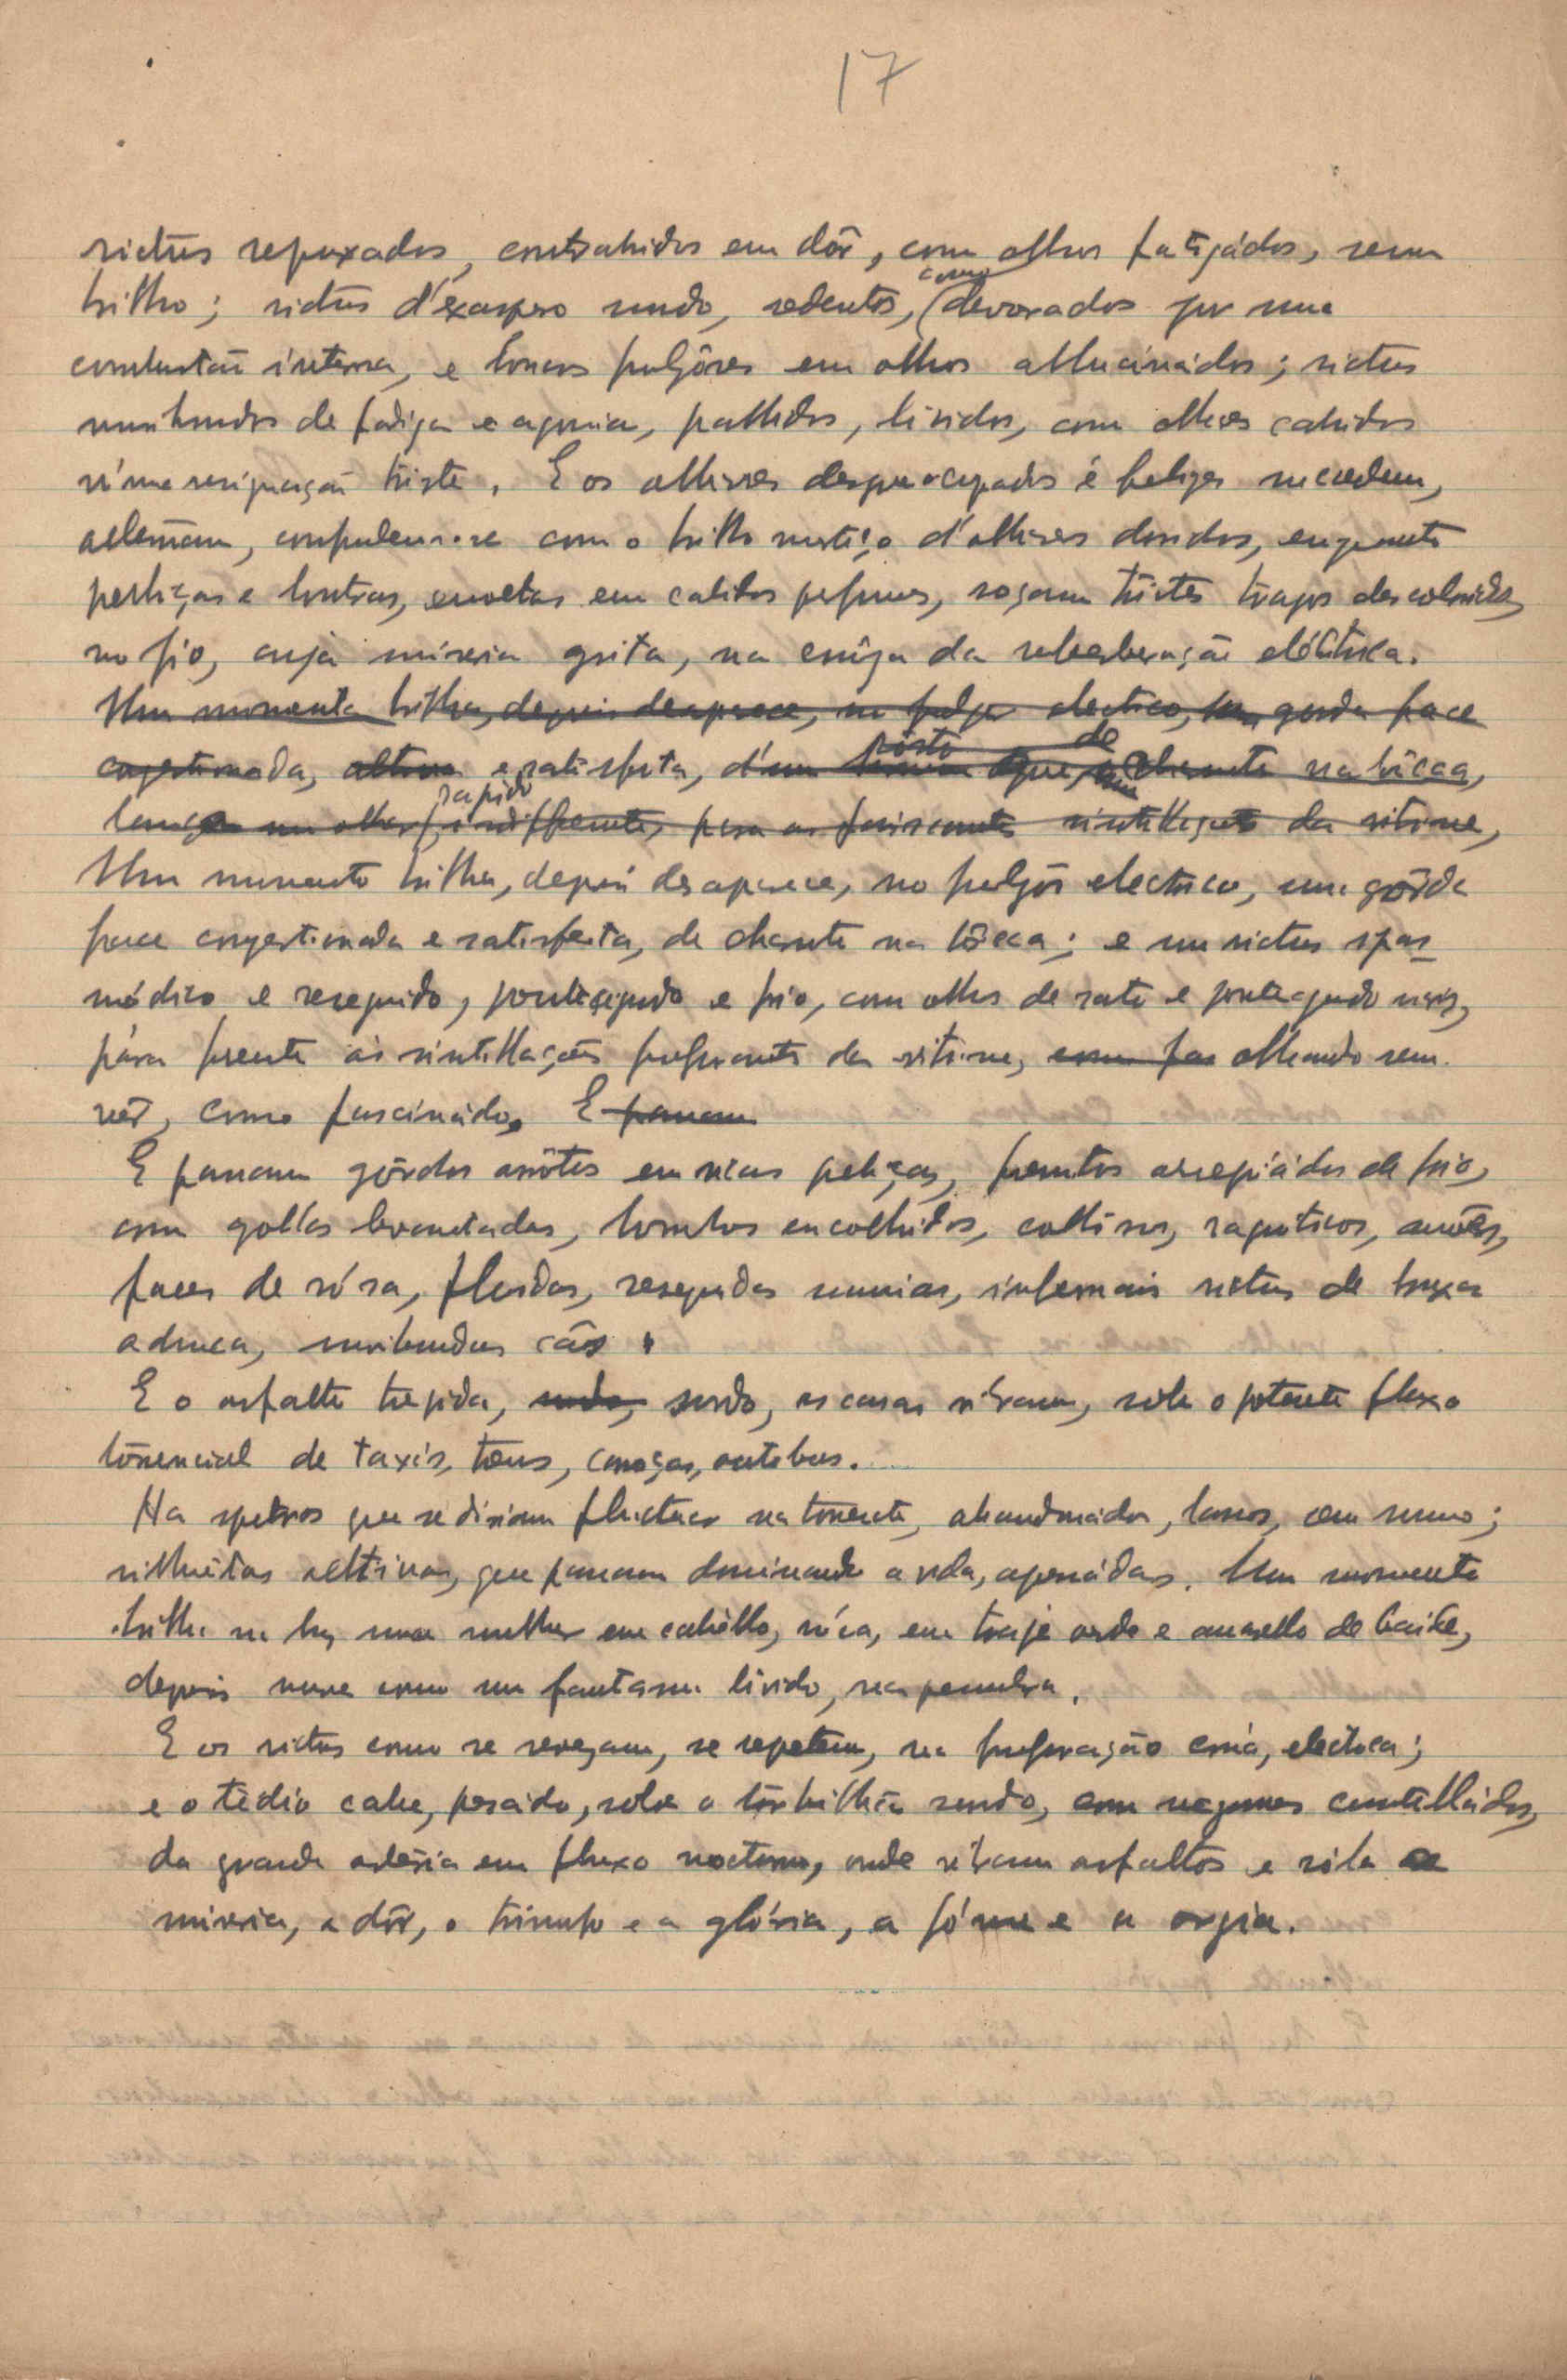 17
rictus repuxados, contrahidos em dôr, com olhos fatigádos, sem
brilho; rictus d'exaspero mudo, sedentos, (como devorados por uma
combustão interna, e loucos fulgôres em olhos allucinádos; rictus
moribundos de fadiga e agonia, pallidos, lividos, com olhares cahidos
n'uma resignação triste. E os olhares despreocupados e felizes succedem,
alternam, confundem-se com o brilho mortiço d'olhares doridos, enquanto
peliças e lontras, envoltas em calidos perfumes, roçam tristes trapos descoloridos,
no frio, cuja miseria grita, na crueza da reberberação eléctrica.
Um momento brilha, depois desaparece, no fulgor electrico, uma gorda face
congestionada, altiva e satisfeita, d'um rôsto de que, charuto na bôcca,
lança um olhar rapido, indifferente, para as faiscantes scintillações da vitrine,
Um momento brilha, depois desaparece, no fulgôr electrico, uma gôrda
face congestionada e satisfeita, de charuto na bôcca; e um rictus spas
módico e resequido, ponteagudo e frio, com olhos de rato e ponteagudo nariz,
pára frente ás scintillações fulgurantes da vitrine, olhando sem
vêr, como fascinádo. E passam
E passam gôrdos arrôtos em ricas peliças, famintos arrepiádos de frio,
com gollas levantadas, lombos encolhidos, cattivos, raquiticos, anões,
faces de rósa, fluidas, resequidas mumias, infernais rictus de bruxa
aduca, moribundos cães.
E o asfalto trepida, surdo, as casas vibram, sob o potente fluxo
torrencial de taxis, trens, carroças, autobus.
Ha spetros que se diriam fluctuar na torrente, abandonádos, lassos, sem rumo;
silhuêtas altivas, que passam dominando a vida, apressádas. Um momento
brilha na luz uma mulher em cabello, rica, em traje verde e amarello de baile,
depois move como um fantasma livido, na penumbra.
E os rictus como se revezam, se repetem, na fulguração crúa, electrica;
e o tédio cahe, pesádo, sobre o torbilhão surdo, com negrumes constelládos,
da grande artéria em fluxo nocturno, onde vibram asfaltos e róla a
miseria, a dôr, o triunfo e a glória, a fóme e a orgia.